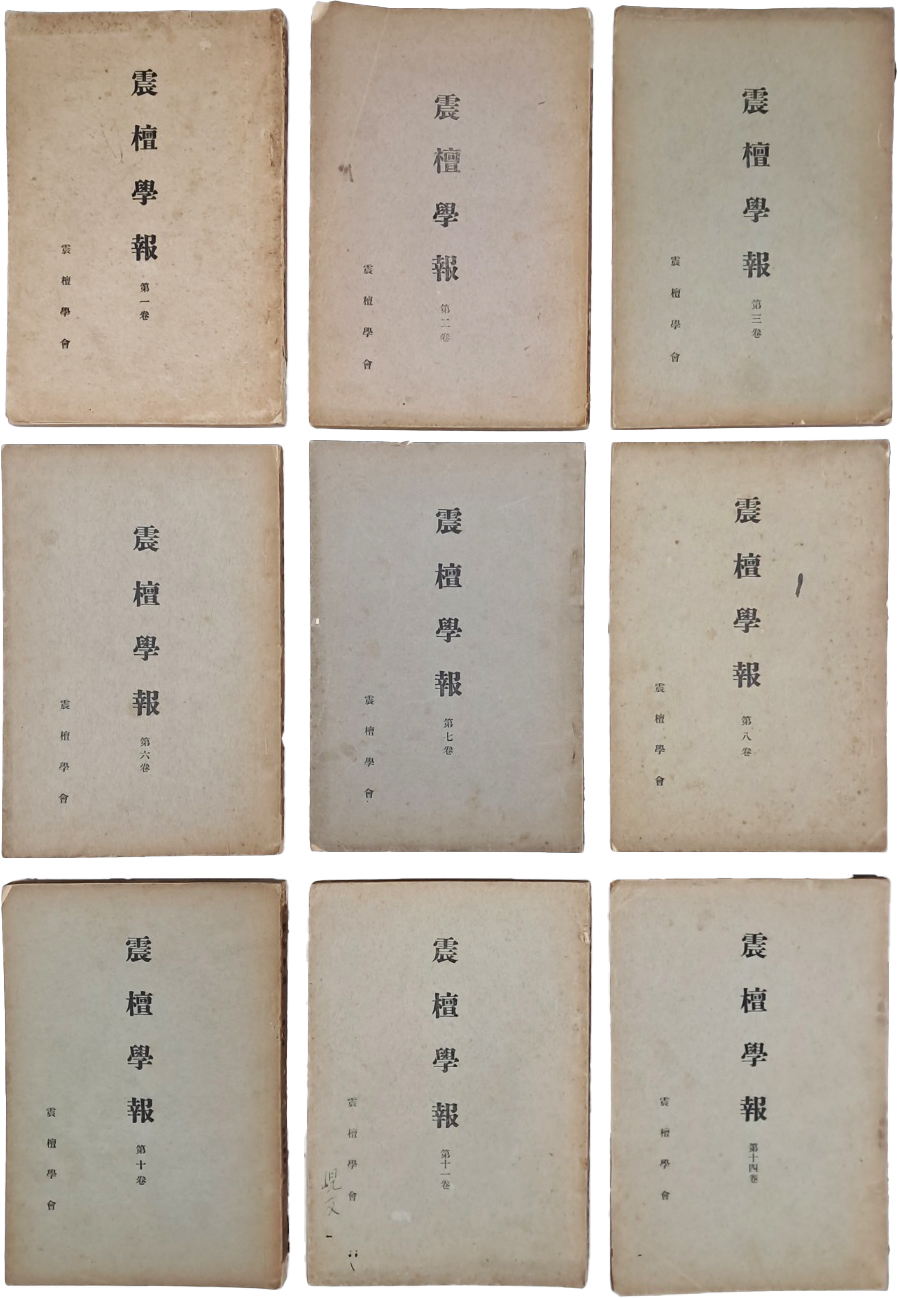 震檀學報
第一卷
震檀學會
震檀學報
第二卷
震檀學會
震檀學報
第三卷
震檀學會
震檀學報
第六卷
震檀學會
震檀學報
第七卷
震檀學會
震檀學報
第八卷
震檀學會
震檀學報
第十卷
震檀學會
震檀學報
第十一卷
震檀學會
震檀學報
第十四卷
震檀學會